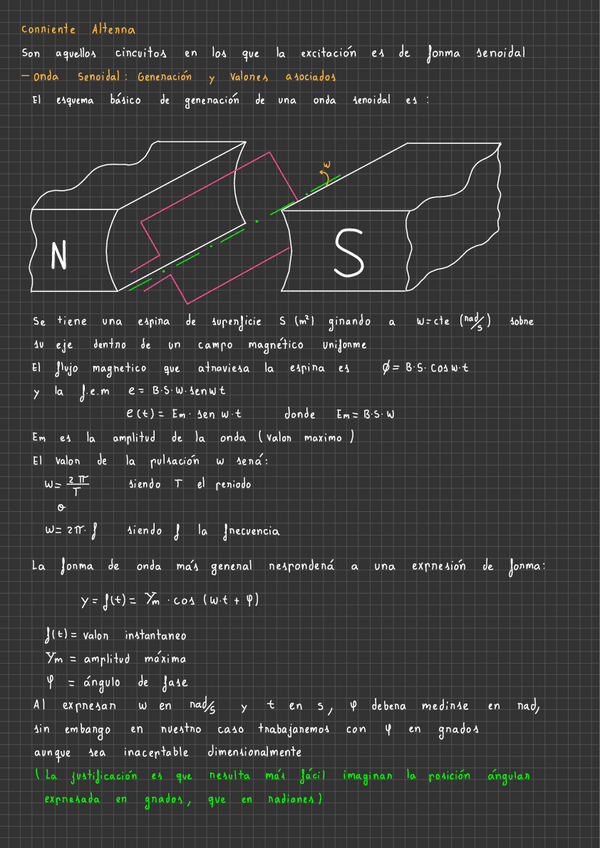 Corriente Alterna
Son aquellos circuitos en los que la excitación es de forma senoidal
- Onda Senoidal: Generación y Valores asociados
El esquema básico de generación de una onda senoidal es:
w
N
S
Se tiene una espira de superficie S (m²) girando a w=cte (rad/s) sobre
su eje dentro de un campo magnético uniforme
El flujo magnetico que atraviesa la espira es ø= B·S·cos w·t
y la f.e.m e = B·S·w·sen w t
e(t) = Em· sen w·t donde Em = B·S·w
Em es la amplitud de la onda (valor maximo)
El valor de la pulsación w será:
w= 2π/T siendo T el periodo
o
w= 2π·f siendo f la frecuencia
La forma de onda más general responderá a una expresión de forma:
y = f(t) = Ym · cos (w·t + φ)
f(t) = valor instantaneo
Ym = amplitud máxima
φ = ángulo de fase
Al expresar w en rad/s y t en s, φ debera medirse en rad,
sin embargo en nuestro caso trabajaremos con φ en grados
aunque sea inaceptable dimensionalmente
(La justificación es que resulta más fácil imaginar la posición ángular
expresada en grados, que en radianes)